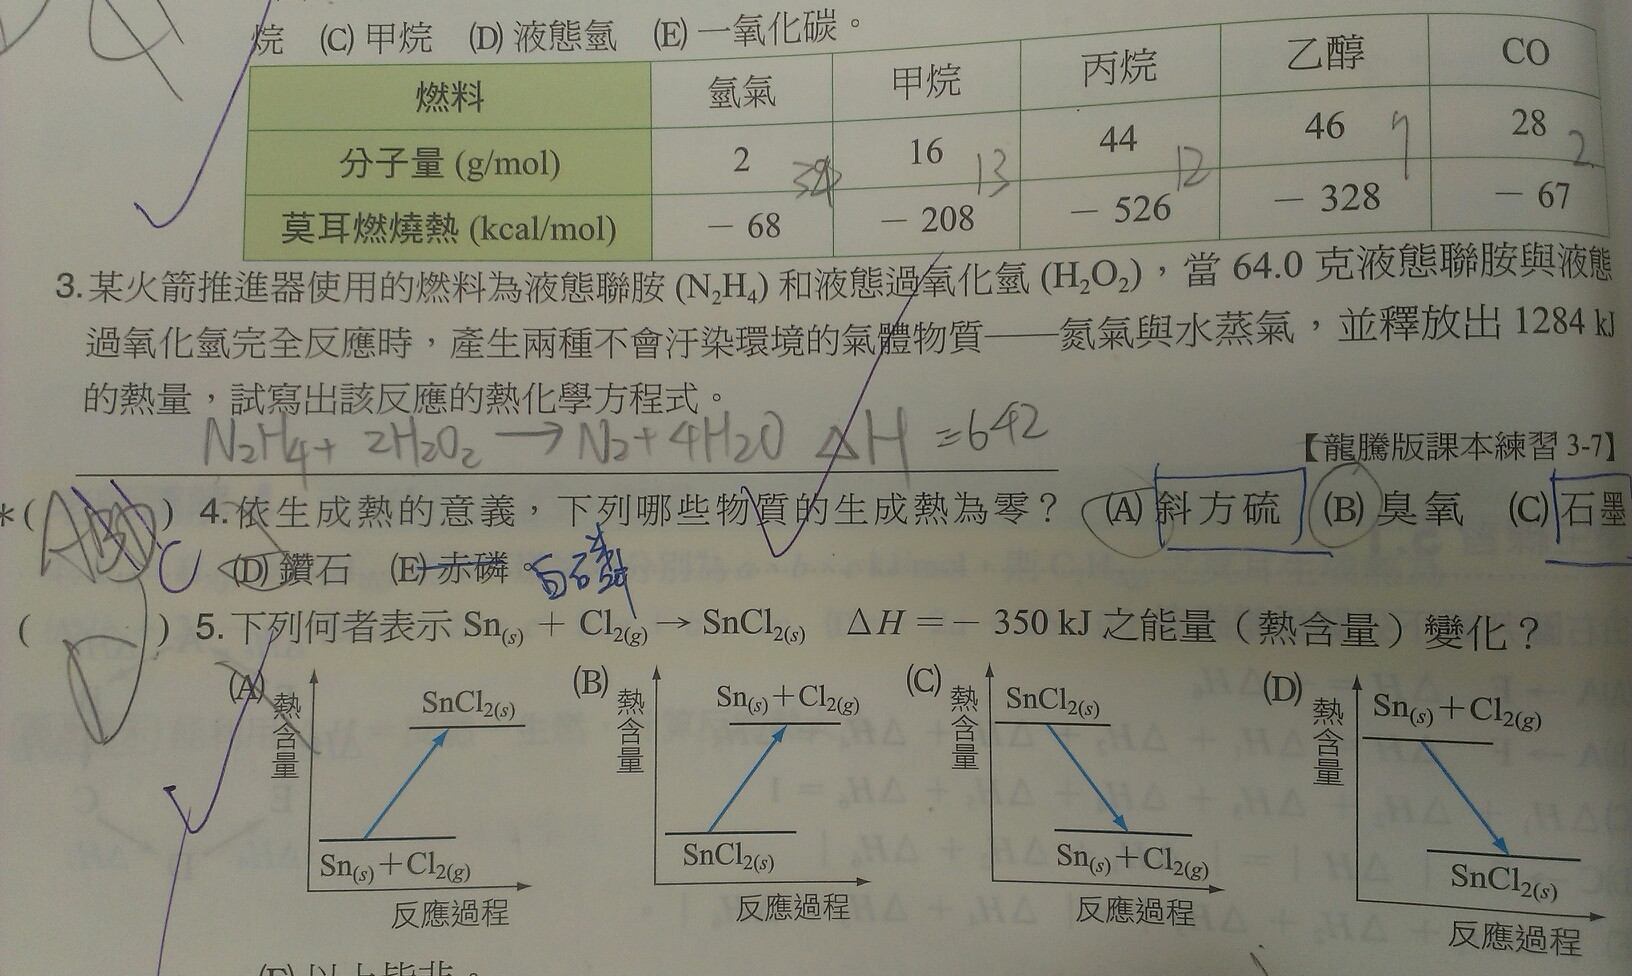 烷 (C) 甲烷 (D) 液態氫 (E) 一氧化碳。
燃料 氫氣 甲烷 丙烷 乙醇 CO
分子量 (g/mol) 2 16 44 46 28
34 13 12 7 2
莫耳燃燒熱 (kcal/mol) － 68 － 208 － 526 － 328 － 67
3. 某火箭推進器使用的燃料為液態聯胺 (N₂H₄) 和液態過氧化氫 (H₂O₂)，當 64.0 克液態聯胺與液態
過氧化氫完全反應時，產生兩種不會汙染環境的氣體物質——氮氣與水蒸氣，並釋放出 1284 kJ
的熱量，試寫出該反應的熱化學方程式。
N₂H₄ + 2H₂O₂ → N₂ + 4H₂O ΔH = 642
【龍騰版課本練習 3-7】
*( ) 4. 依生成熱的意義，下列哪些物質的生成熱為零？ (A) 斜方硫 (B) 臭氧 (C) 石墨
C (D) 鑽石 (E) 赤磷。 白磷
( D ) 5. 下列何者表示 Sn(s) ＋ Cl₂(g) → SnCl₂(s) ΔH ＝－ 350 kJ 之能量（熱含量）變化？
(A) 熱含量 SnCl₂(s) Sn(s)＋Cl₂(g) 反應過程
(B) 熱含量 Sn(s)＋Cl₂(g) SnCl₂(s) 反應過程
(C) 熱含量 SnCl₂(s) Sn(s)＋Cl₂(g) 反應過程
(D) 熱含量 Sn(s)＋Cl₂(g) SnCl₂(s) 反應過程
(E) 以上皆非。